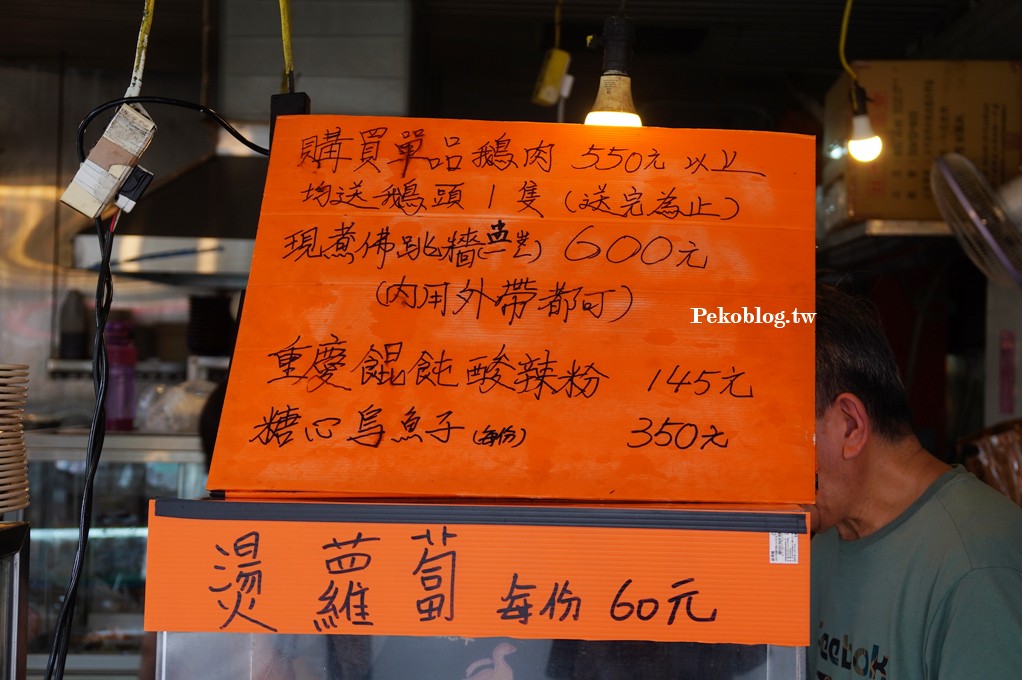 購買單品鵝肉 550元 以上
均送鵝頭 1 隻 (送完為止)
現煮佛跳牆(盅) 600元
(內用外帶都可)
Pekoblog.tw
重慶餛飩酸辣粉 145元
糖心烏魚子(每份) 350元
燙 蘿蔔 每份 60元